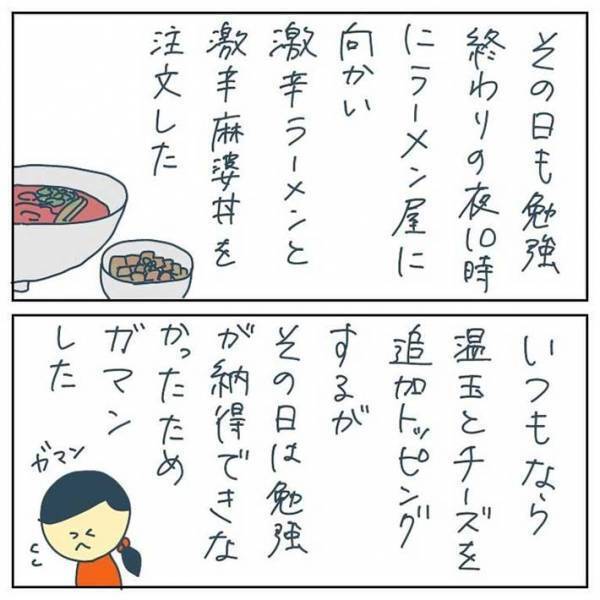 その日も勉強
終わりの夜10時
にラーメン屋に
向かい
激辛ラーメンと
激辛麻婆丼を
注文した
いつもなら
温玉とチーズを
追加トッピング
するが
その日は勉強
が納得できな
かったため
ガマン
した
ガマン